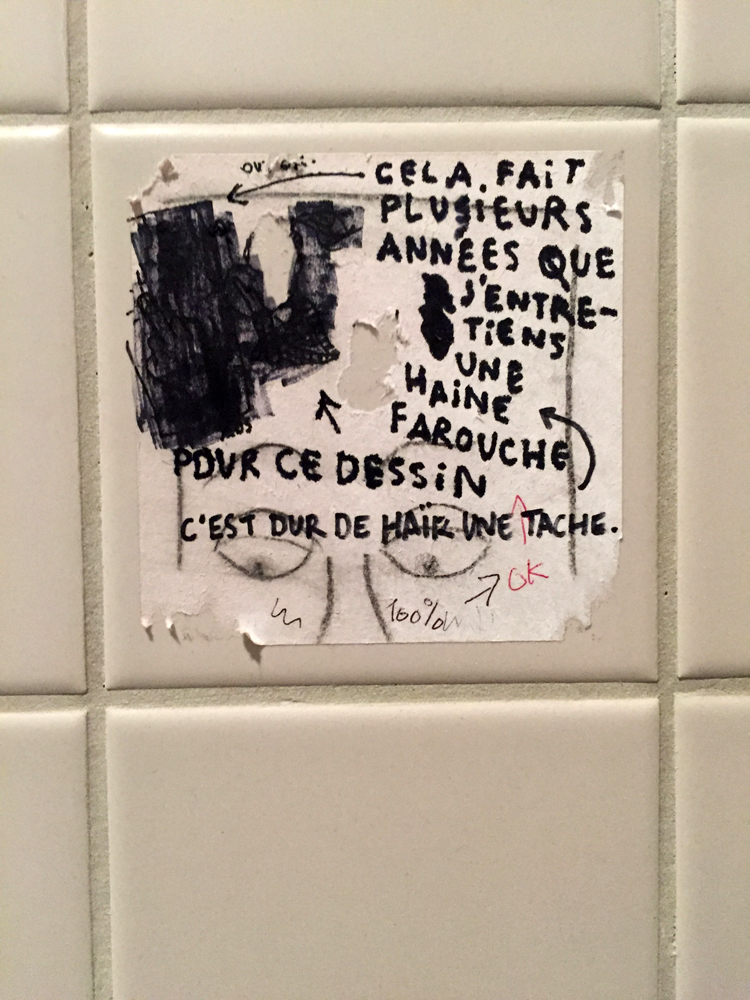 CELA FAIT
PLUSIEURS
ANNÉES QUE
J'ENTRE-
TIENS
UNE
HAINE
FAROUCHE
POUR CE DESSIN
C'EST DUR DE HAÏR UNE TACHE.
OK
100%